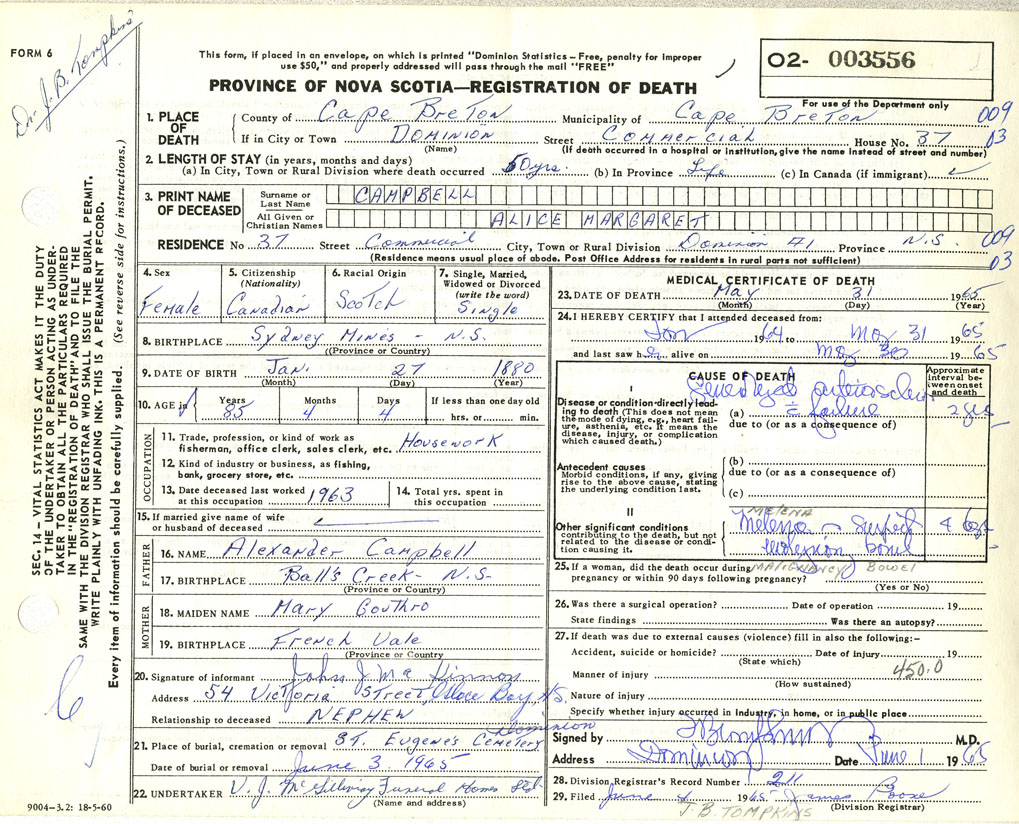 FORM 6
Dr. J. B. Tompkins
This form, if placed in an envelope, on which is printed "Dominion Statistics – Free, penalty for improper
use $50," and properly addressed will pass through the mail "FREE"
O2- 003556
PROVINCE OF NOVA SCOTIA—REGISTRATION OF DEATH
For use of the Department only
SEC. 14 – VITAL STATISTICS ACT MAKES IT THE DUTY
OF THE UNDERTAKER OR PERSON ACTING AS UNDER-
TAKER TO OBTAIN ALL THE PARTICULARS REQUIRED
IN THE "REGISTRATION OF DEATH" AND TO FILE THE
SAME WITH THE DIVISION REGISTRAR WHO SHALL ISSUE THE BURIAL PERMIT.
WRITE PLAINLY WITH UNFADING INK. THIS IS A PERMANENT RECORD.
Every item of information should be carefully supplied. (See reverse side for instructions.)
1. PLACE OF DEATH
County of Cape Breton Municipality of Cape Breton 009
If in City or Town DOMINION Street Commercial House No. 37 03
(Name) (If death occurred in a hospital or institution, give the name instead of street and number)
2. LENGTH OF STAY (in years, months and days)
(a) In City, Town or Rural Division where death occurred 50 yrs. (b) In Province Life (c) In Canada (if immigrant)
3. PRINT NAME OF DECEASED
Surname or Last Name CAMPBELL
All Given or Christian Names ALICE MARGARET
RESIDENCE No 37 Street Commercial City, Town or Rural Division Dominion #1 Province N.S. 009
(Residence means usual place of abode. Post Office Address for residents in rural parts not sufficient) 03
4. Sex Female
5. Citizenship (Nationality) Canadian
6. Racial Origin Scotch
7. Single, Married, Widowed or Divorced (write the word) Single
8. BIRTHPLACE Sydney Mines - N.S.
(Province or Country)
9. DATE OF BIRTH Jan. 27 1880
(Month) (Day) (Year)
10. AGE in Years 85 Months 4 Days 4 If less than one day old hrs. or min.
OCCUPATION
11. Trade, profession, or kind of work as
fisherman, office clerk, sales clerk, etc. Housework
12. Kind of industry or business, as fishing,
bank, grocery store, etc.
13. Date deceased last worked at this occupation 1963
14. Total yrs. spent in this occupation
15. If married give name of wife
or husband of deceased
FATHER
16. NAME Alexander Campbell
17. BIRTHPLACE Ball's Creek - N.S.
(Province or Country)
MOTHER
18. MAIDEN NAME Mary Gouthro
19. BIRTHPLACE French Vale
(Province or Country
20. Signature of informant John J. McKinnon
Address 54 Victoria Street, Glace Bay N.S.
Relationship to deceased NEPHEW
21. Place of burial, cremation or removal St. Eugene's Cemetery Dominion
Date of burial or removal June 3, 1965
22. UNDERTAKER V. J. McGillivray Funeral Homes
(Name and address)
9004–3.2: 18-5-60
MEDICAL CERTIFICATE OF DEATH
23. DATE OF DEATH May 31 1965
(Month) (Day) (Year)
24. I HEREBY CERTIFY that I attended deceased from:
1964 to May 31 1965
and last saw her alive on May 30 1965
CAUSE OF DEATH
Approximate interval between onset and death
I
Disease or condition directly leading to death (This does not mean the mode of dying, e.g., heart failure, asthenia, etc. It means the disease, injury, or complication which caused death.)
Generalized arteriosclerosis
(a) = failure 2 yrs
due to (or as a consequence of)
Antecedent causes
Morbid conditions, if any, giving rise to the above cause, stating the underlying condition last.
(b)
due to (or as a consequence of)
(c)
II
Other significant conditions contributing to the death, but not related to the disease or condition causing it.
MELENA
Melena - Suspect 4
bowel
25. If a woman, did the death occur during MALIGNANCY BOWEL
pregnancy or within 90 days following pregnancy?
(Yes or No)
26. Was there a surgical operation? Date of operation 19
State findings Was there an autopsy?
27. If death was due to external causes (violence) fill in also the following:–
Accident, suicide or homicide? Date of injury 19
(State which)
Manner of injury 450.0
(How sustained)
Nature of injury
Specify whether injury occurred in Industry, in home, or in public place
Signed by M.D.
Address Dominion Date June 1 1965
28. Division Registrar's Record Number 211
29. Filed June 4 1965 James
(Division Registrar)
J. B. TOMPKINS